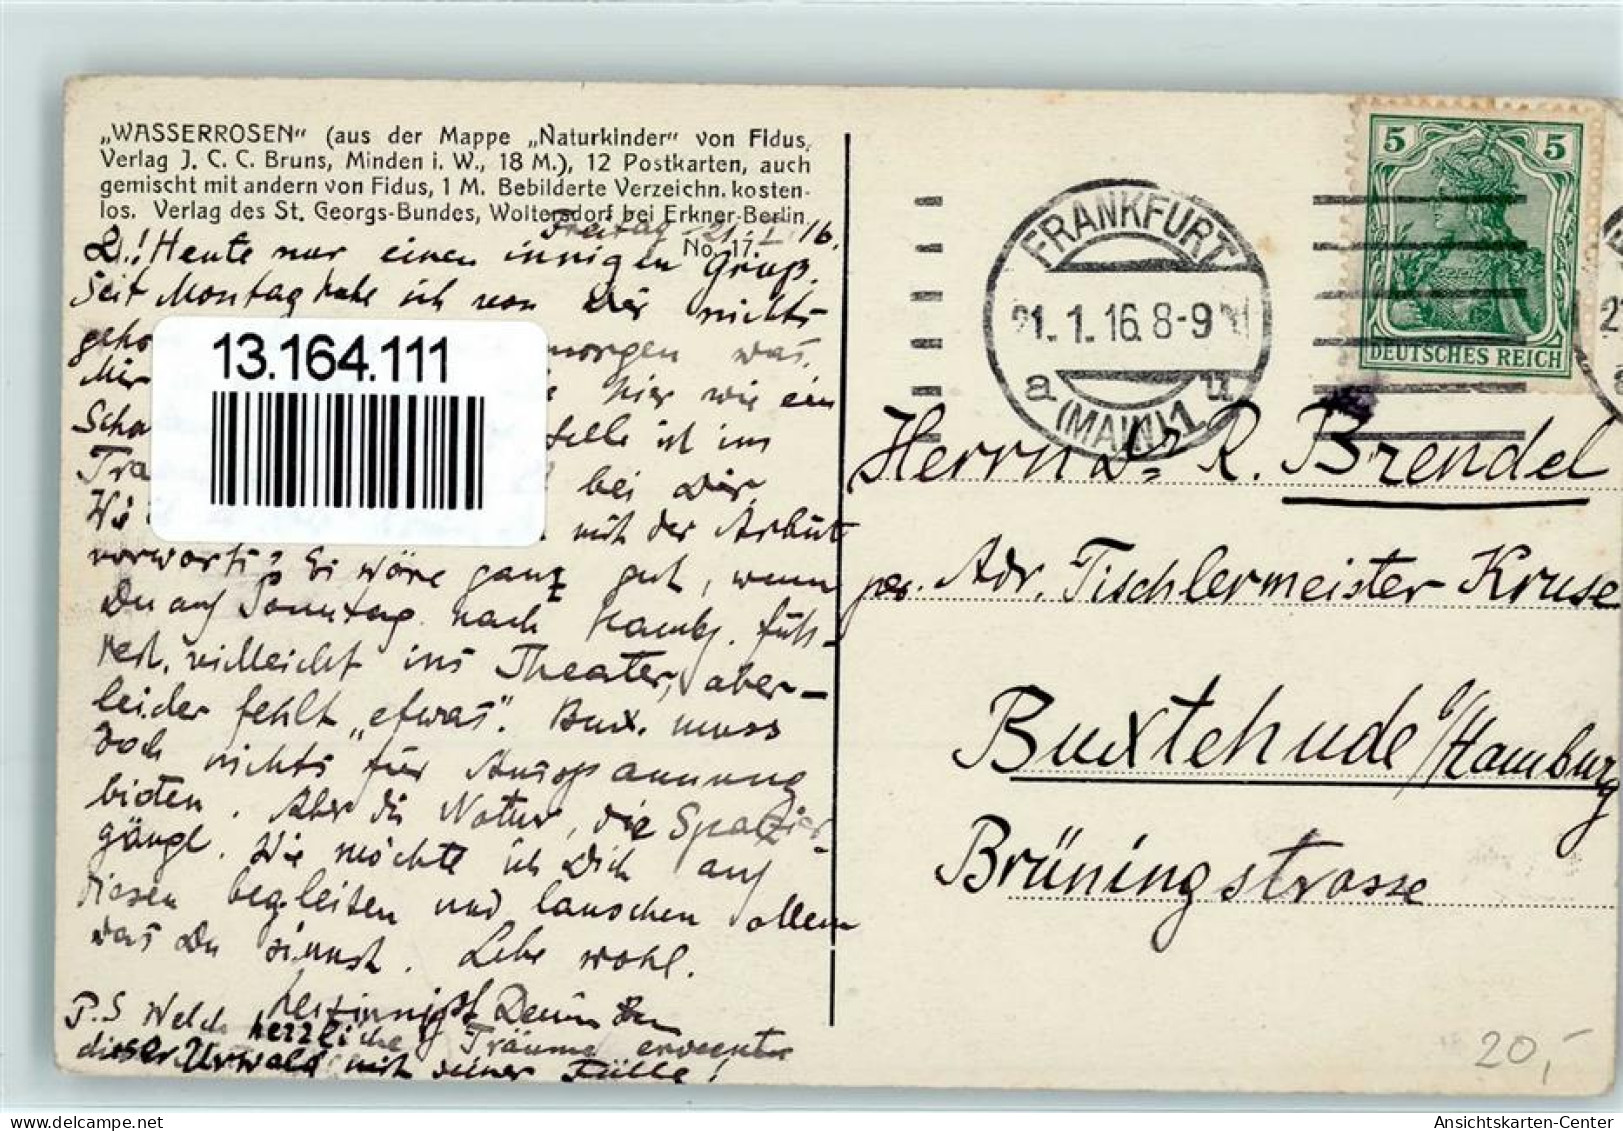 „WASSERROSEN" (aus der Mappe „Naturkinder" von Fidus,
Verlag J. C. C. Bruns, Minden i. W., 18 M.), 12 Postkarten, auch
gemischt mit andern von Fidus, 1 M. Bebilderte Verzeichn. kosten-
los. Verlag des St. Georgs-Bundes, Woltersdorf bei Erkner-Berlin.
No. 17.
Freitag 21. I. 16.
L.! Heute nur einen innigen Gruß.
Seit Montag habe ich von Dir nichts
geho morgen was.
Mir hier wie ein
Scha ist im
Tra bei Dir.
Wi mit der Arbeit
vorwärts? Es wäre ganz gut, wenn
Du auf Sonntag nach Hambg. füh-
rest, vielleicht ins Theater, aber-
leider fehlt „etwas". Bux. muss
doch nichts für Ausspannung
bieten. Aber die Natur, die Spazier-
gänge. Wie möchte ich Dich auf
diesen begleiten und lauschen allem
was Du sinnst. Lebe wohl.
herzinnigst Deine
P.S Welch herzliche Träume erweckte
dieser Urwald mit seiner Fülle!
13.164.111
FRANKFURT
21.1.16.8-9 N
a (MAIN) 1 u
5 5
DEUTSCHES REICH
Herrn Dr R. Brendel
per. Adr. Tischlermeister Kruse
Buxtehude b/Hamburg
Brüningstrasse
20,-
Ansichtskarten-Center